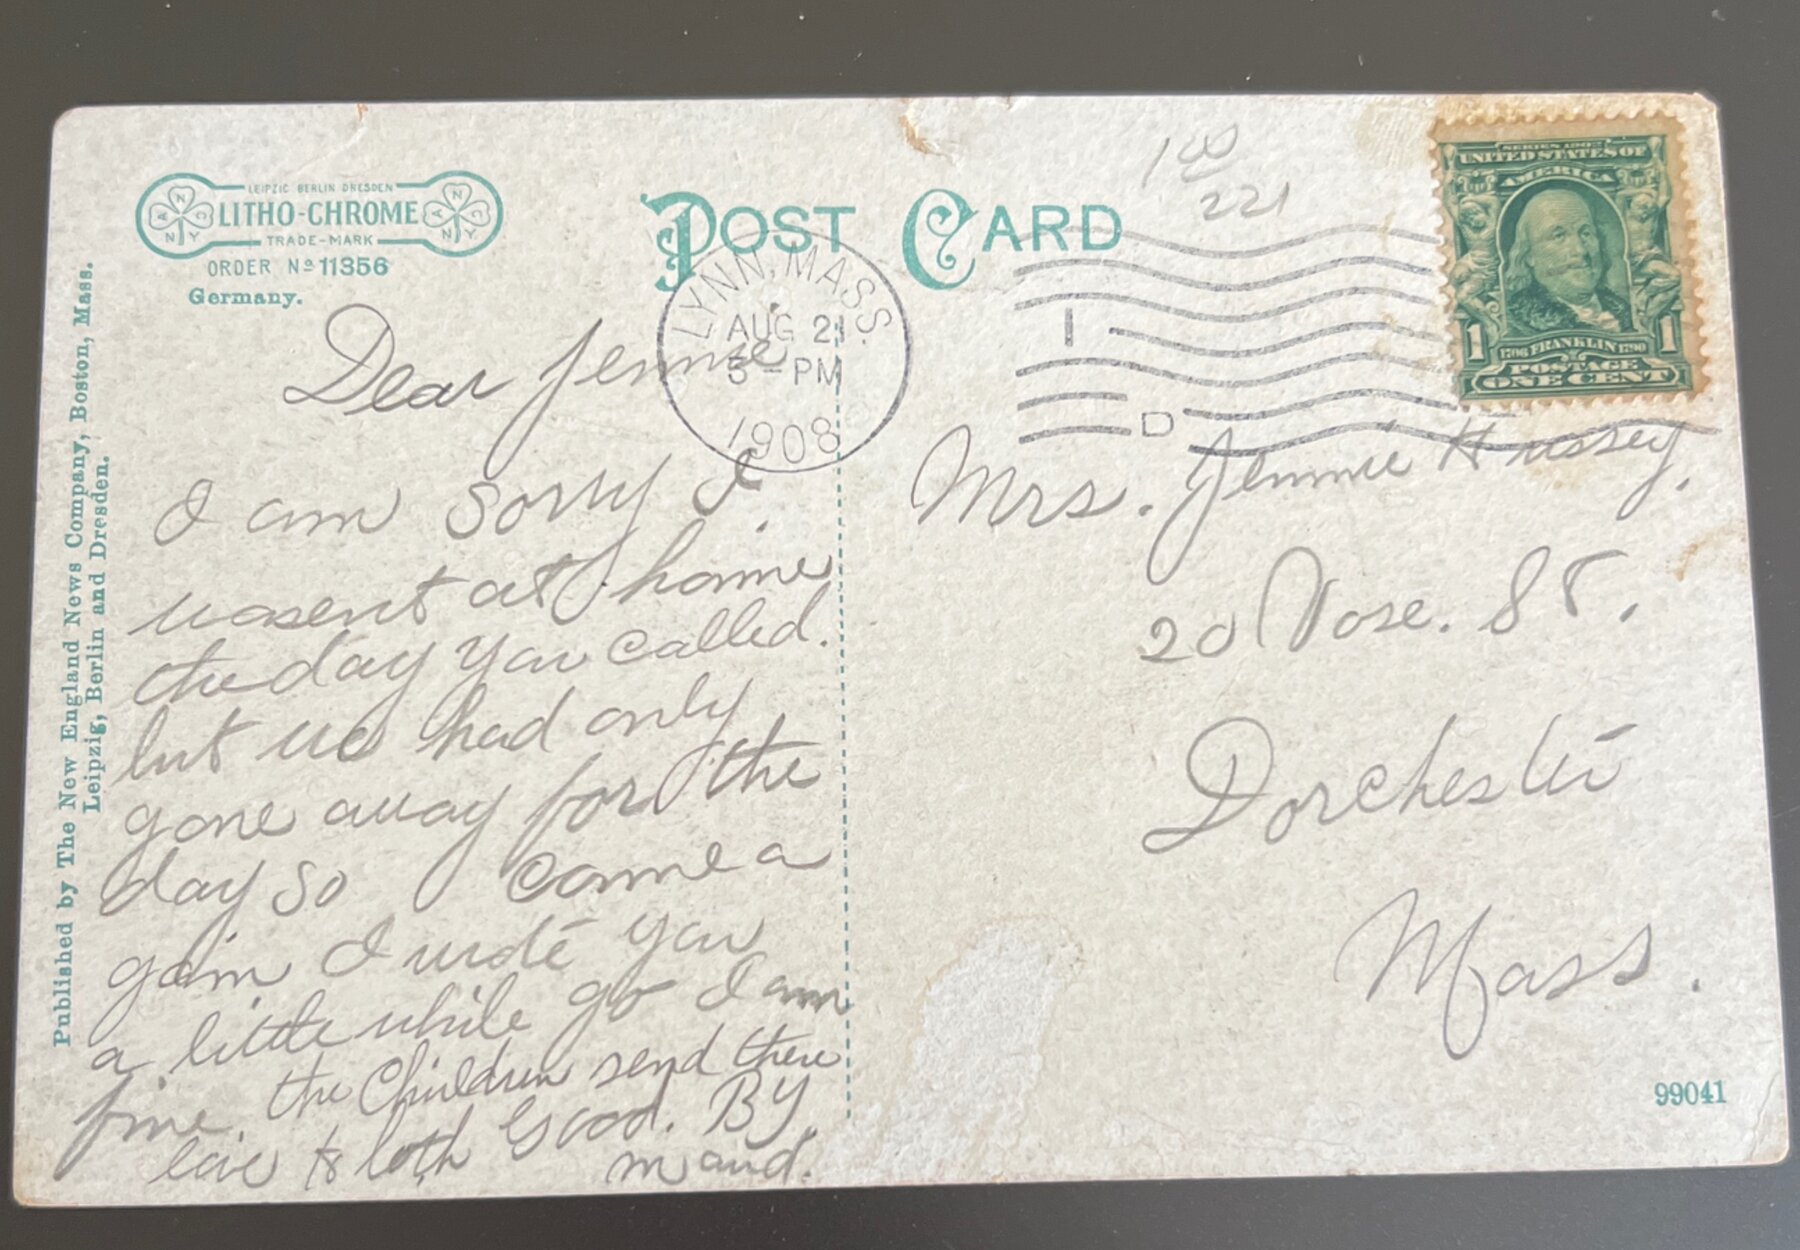 LEIPZIG BERLIN DRESDEN
LITHO-CHROME
TRADE-MARK
ORDER No 11356
Germany.
POST CARD
1 00
221
SERIES 1902
UNITED STATES OF
AMERICA
1 1706 FRANKLIN 1790 1
POSTAGE
ONE CENT
LYNN, MASS.
AUG 21
5-PM
1908
I
D
Published by The New England News Company, Boston, Mass.
Leipzig, Berlin and Dresden.
Dear Jennie
I am sorry I
wasent at home
the day you called.
but we had only
gone away for the
day so come a
gain I wrote you
a little while go I am
fine. the Children send there
love to both Good. By.
maud.
Mrs. Jennie Hussey.
20 Vose. St.
Dorchester
Mass.
99041